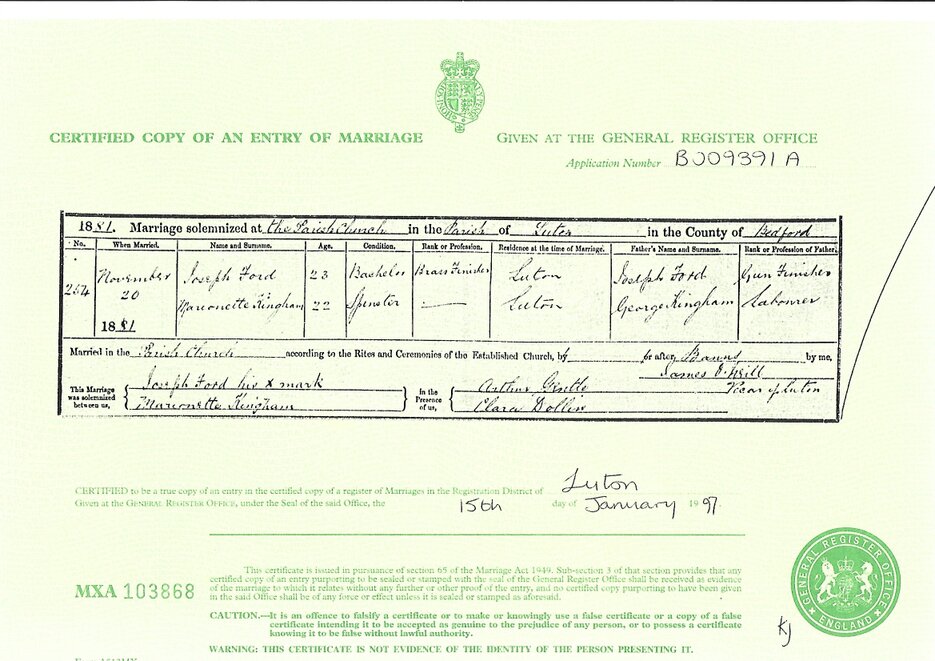 CERTIFIED COPY OF AN ENTRY OF MARRIAGE
GIVEN AT THE GENERAL REGISTER OFFICE
Application Number BJ09391A
1881. Marriage solemnized at the Parish Church in the Parish of Luton in the County of Bedford
No. When Married. Name and Surname. Age. Condition. Rank or Profession. Residence at the time of Marriage. Father's Name and Surname. Rank or Profession of Father.
254 November 20 1881 Joseph Ford 23 Bachelor Brass Finisher Luton Joseph Ford Gun Finisher
Marionette Kingham 22 Spinster — Luton George Kingham Labourer
Married in the Parish Church according to the Rites and Ceremonies of the Established Church, by or after Banns by me,
James O'Neill
Vicar of Luton
This Marriage was solemnized between us, Joseph Ford his x mark
Marionette Kingham
In the Presence of us, Arthur Gentle
Clara Dollin
CERTIFIED to be a true copy of an entry in the certified copy of a register of Marriages in the Registration District of Luton
Given at the GENERAL REGISTER OFFICE, under the Seal of the said Office, the 15th day of January 1997
MXA 103868
This certificate is issued in pursuance of section 65 of the Marriage Act 1949. Sub-section 3 of that section provides that any
certified copy of an entry purporting to be sealed or stamped with the seal of the General Register Office shall be received as evidence
of the marriage to which it relates without any further or other proof of the entry, and no certified copy purporting to have been given
in the said Office shall be of any force or effect unless it is sealed or stamped as aforesaid.
CAUTION.—It is an offence to falsify a certificate or to make or knowingly use a false certificate or a copy of a false
certificate intending it to be accepted as genuine to the prejudice of any person, or to possess a certificate
knowing it to be false without lawful authority.
WARNING: THIS CERTIFICATE IS NOT EVIDENCE OF THE IDENTITY OF THE PERSON PRESENTING IT.
GENERAL REGISTER OFFICE
ENGLAND
KJ